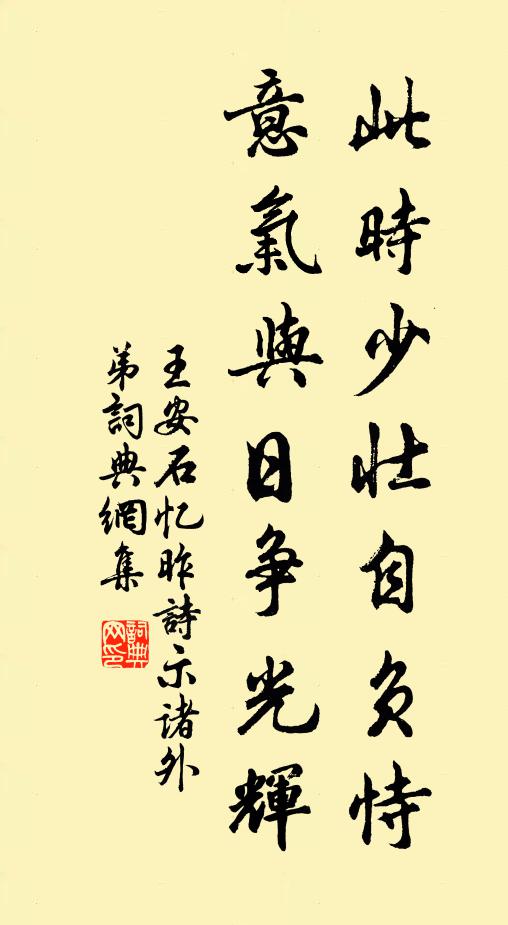 此時少壯自負恃
意氣與日爭光輝
王安石忆昨詩示諸外
弟詞典網集
詞典
网印